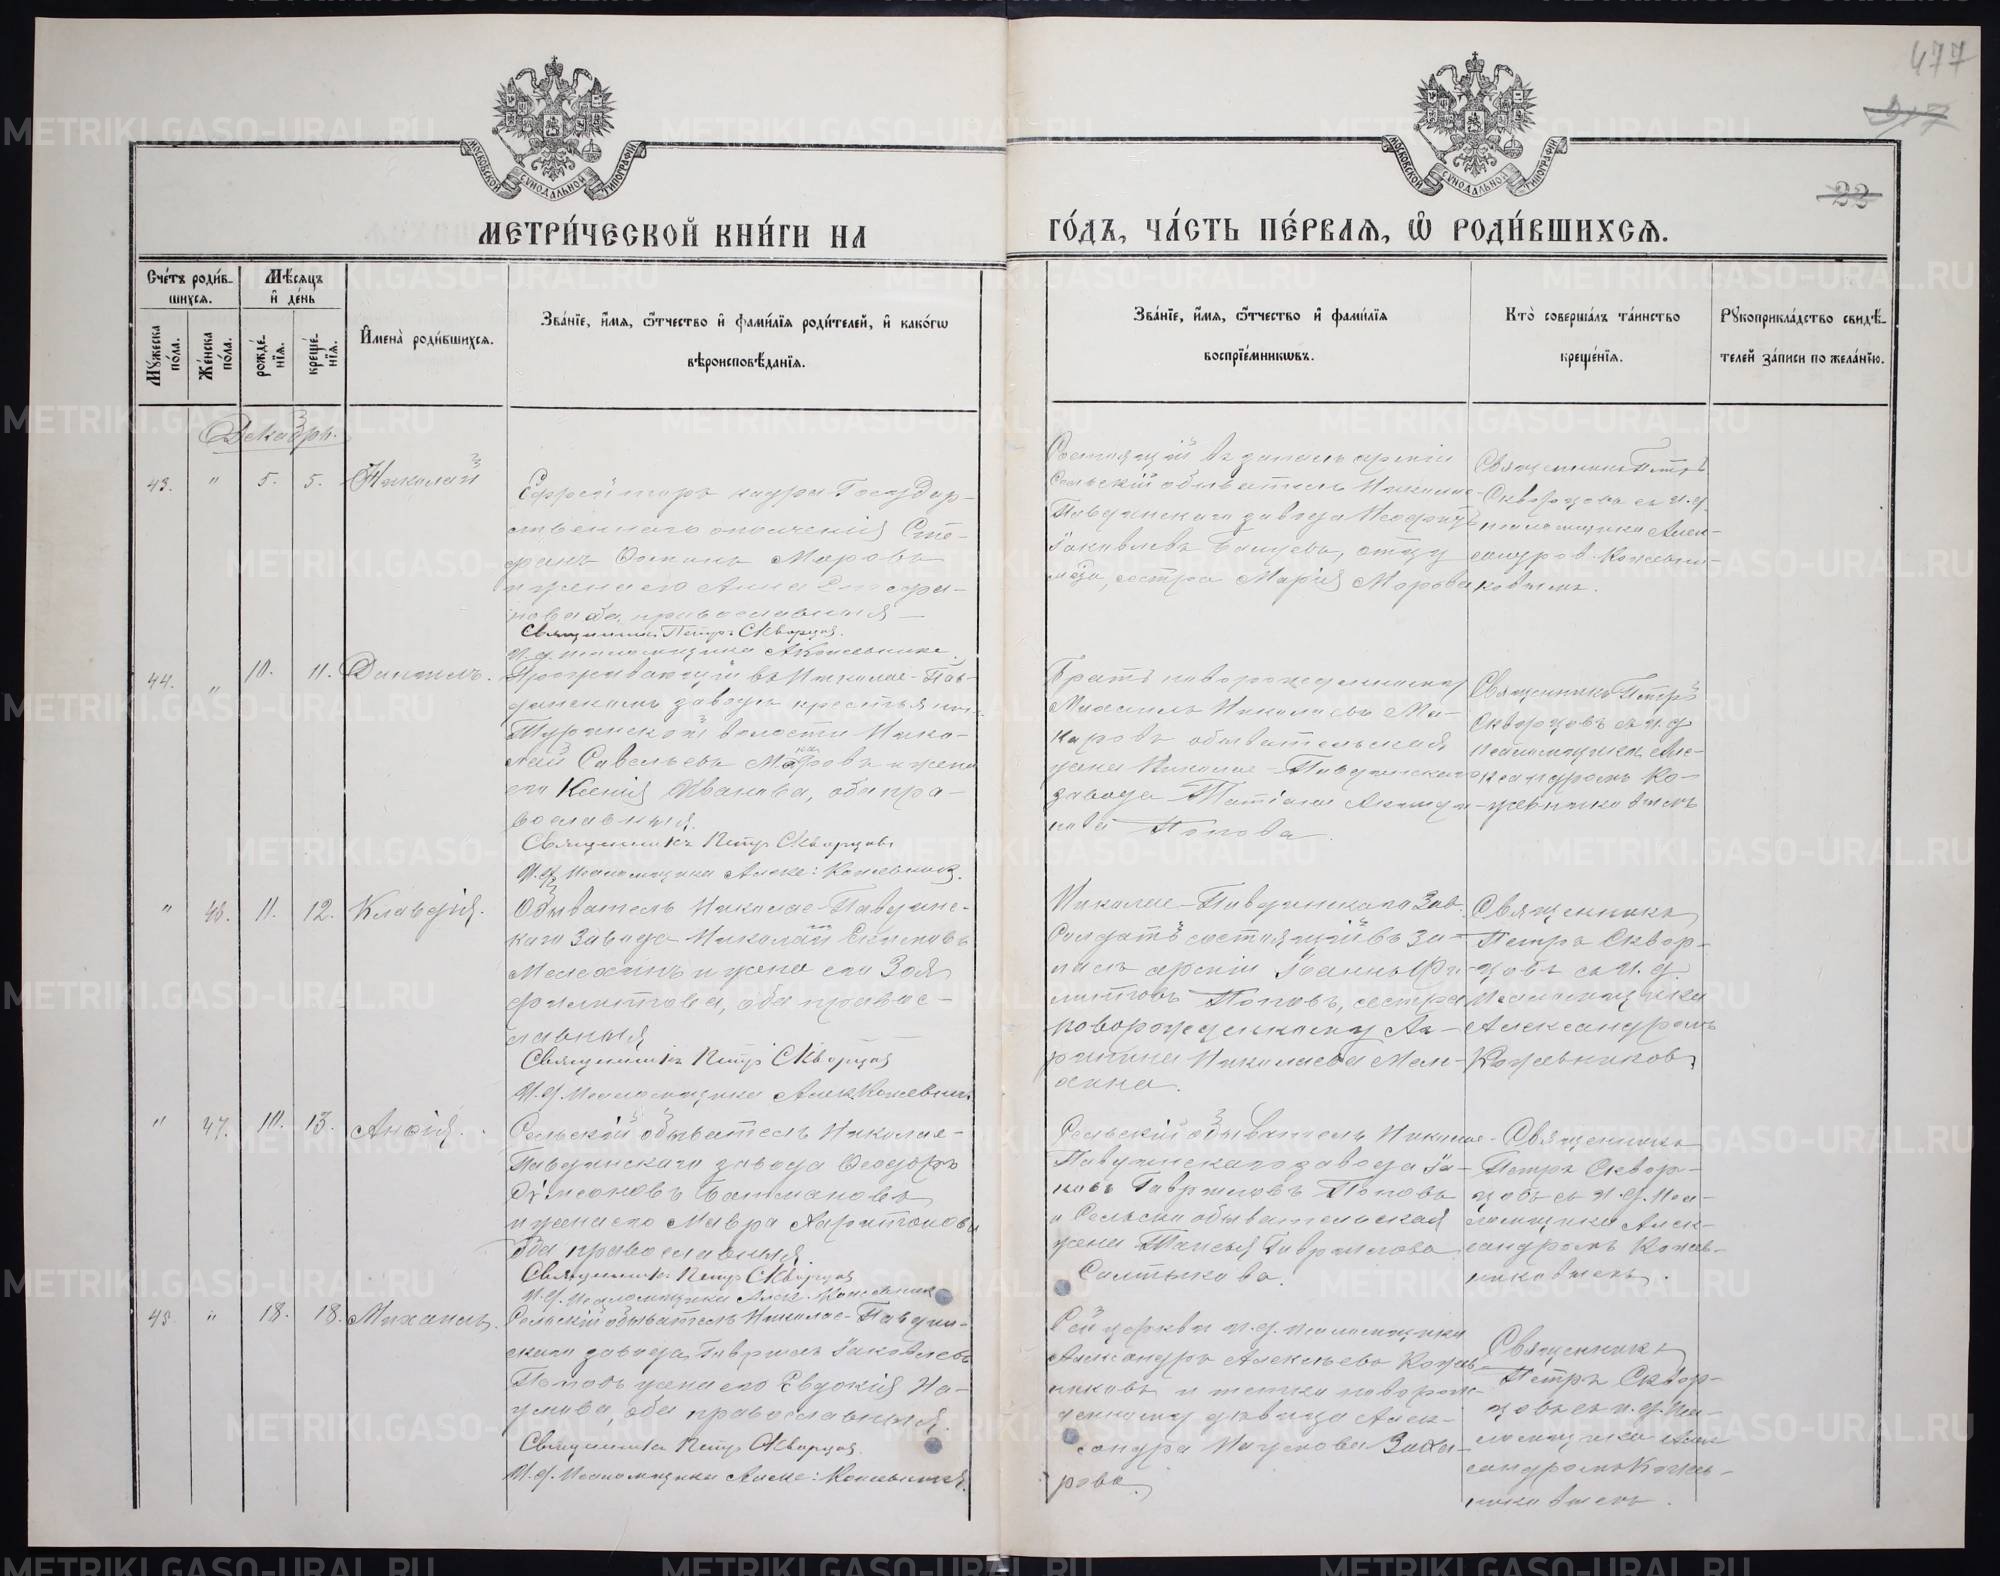 477
917
22
МОСКОВСКОЙ СѴНОДАЛЬНОЙ ТИПОГРАФІИ
МОСКОВСКОЙ СѴНОДАЛЬНОЙ ТИПОГРАФІИ
МЕТРИ́ЧЕСКОЙ КНИ́ГИ НА
ГО́ДЪ, ЧА́СТЬ ПЕ́РВАѦ, Ѡ РОДИ́ВШИХСѦ.
Сче́тъ роди́в-
шихсѧ.
Мꙋ́жеска по́ла.
Же́нска по́ла.
Мѣ́сѧцъ
и҆ де́нь
рожде́-
нїѧ.
креще́-
нїѧ.
И҆мена̀ роди́вшихсѧ.
Зва́нїе, и҆́мѧ, ѻ҆́тчество и҆ фами́лїѧ роди́телей, и҆ како́гѡ
вѣроисповѣ́данїѧ.
Зва́нїе, и҆́мѧ, ѻ҆́тчество и҆ фами́лїѧ
воспрїе́мникѡвъ.
Кто̀ соверша́лъ та́инство
креще́нїѧ.
Рꙋкоприкла́дство свидѣ́-
телей за́писи по жела́нїю.
Декабрь.
43. " 5. 5. Николай
Ефрейторъ кадра Государ-
ственнаго ополченія Сте-
фанъ Маровъ
и жена его Анна Стефа-
нова оба православныя
Священникъ Петръ Скворцовъ.
И. д. псаломщика А Кожевников.
Состоящій въ запасѣ арміи
Сельскій обыватель Николае-
Павдинскаго завода
Іаковлевъ отцу
сестра Марія Морова
Священникъ Петръ
Скворцовъ съ и. д.
псаломщика Алек-
сандров. Кожевни-
ковымъ.
44. " 10. 11. Даніилъ.
Проживающій въ Николае-Пав-
динскомъ заводѣ крестьянин
Туринской волости Нико-
лай Савельевъ Макаровъ и жена
его Ксенія Иванова, оба пра-
вославныя.
Священникъ Петръ Скворцовъ
И. д. псаломщика Алекс: Кожевников.
Братъ новорожденному
Михаилъ Николаевъ Ма-
каровъ обывательская
жена Николае-Павдинскаго
завода Татіана
нова Попова.
Священникъ Петръ
Скворцовъ съ и. д.
псаломщика Але-
ксандромъ Ко-
жевниковымъ
" 46. 11. 12. Клавдія.
Обыватель Николае-Павдинс-
каго Завода Николай
Мелехинъ и жена его Зоя
Филиппова, оба правос-
лавныя
Священникъ Петръ Скворцов
И. д. псаломщика Алек Кожевник
Николае-Павдинскаго Зав.
Солдатъ состоящій въ за-
пасѣ арміи Іоаннъ Фи-
липповъ Поповъ, сестра
новорожденному Ак-
Николаева Меле-
хина.
Священникъ
Петръ Сквор-
цовъ съ и. д.
псаломщика
Александромъ
Кожевниковым
" 47. 10. 13. Анфія.
Сельскій обыватель Николае-
Павдинскаго завода Ѳеодоръ
Башмаковъ
и жена его Мавра Харитонова
оба православныя
Священникъ Петръ Скворцов
И. д. псаломщика Алекс. Кожевник
Сельскій обыватель Николае-
Павдинскаго завода Іа-
ковъ Гавриловъ Поповъ
и Сельско обывательская
жена Таисья Гаврилова
Салтыкова.
Священникъ
Петръ Сквор-
цовъ съ и. д. пса-
ломщика Алек-
сандромъ Кожев-
никовымъ.
45. " 18. 18. Михаилъ.
Сельскій обыватель Николае-Павдин-
скаго завода Гавріилъ Іаковлевъ
Поповъ жена его Евдокія На-
умова, оба православныя.
Священникъ Петръ Скворцов.
И. д. псаломщика Алекс: Кожевников.
Сей церкви и. д. псаломщика
Александръ Алексѣевъ Кожев-
никовъ и тетка новорож-
денному дѣвица Алек-
сандра Наумова Заха-
рова.
Священникъ
Петръ Сквор-
цовъ съ и. д. пса-
ломщика Алек
сандромъ Кожев-
никовымъ.